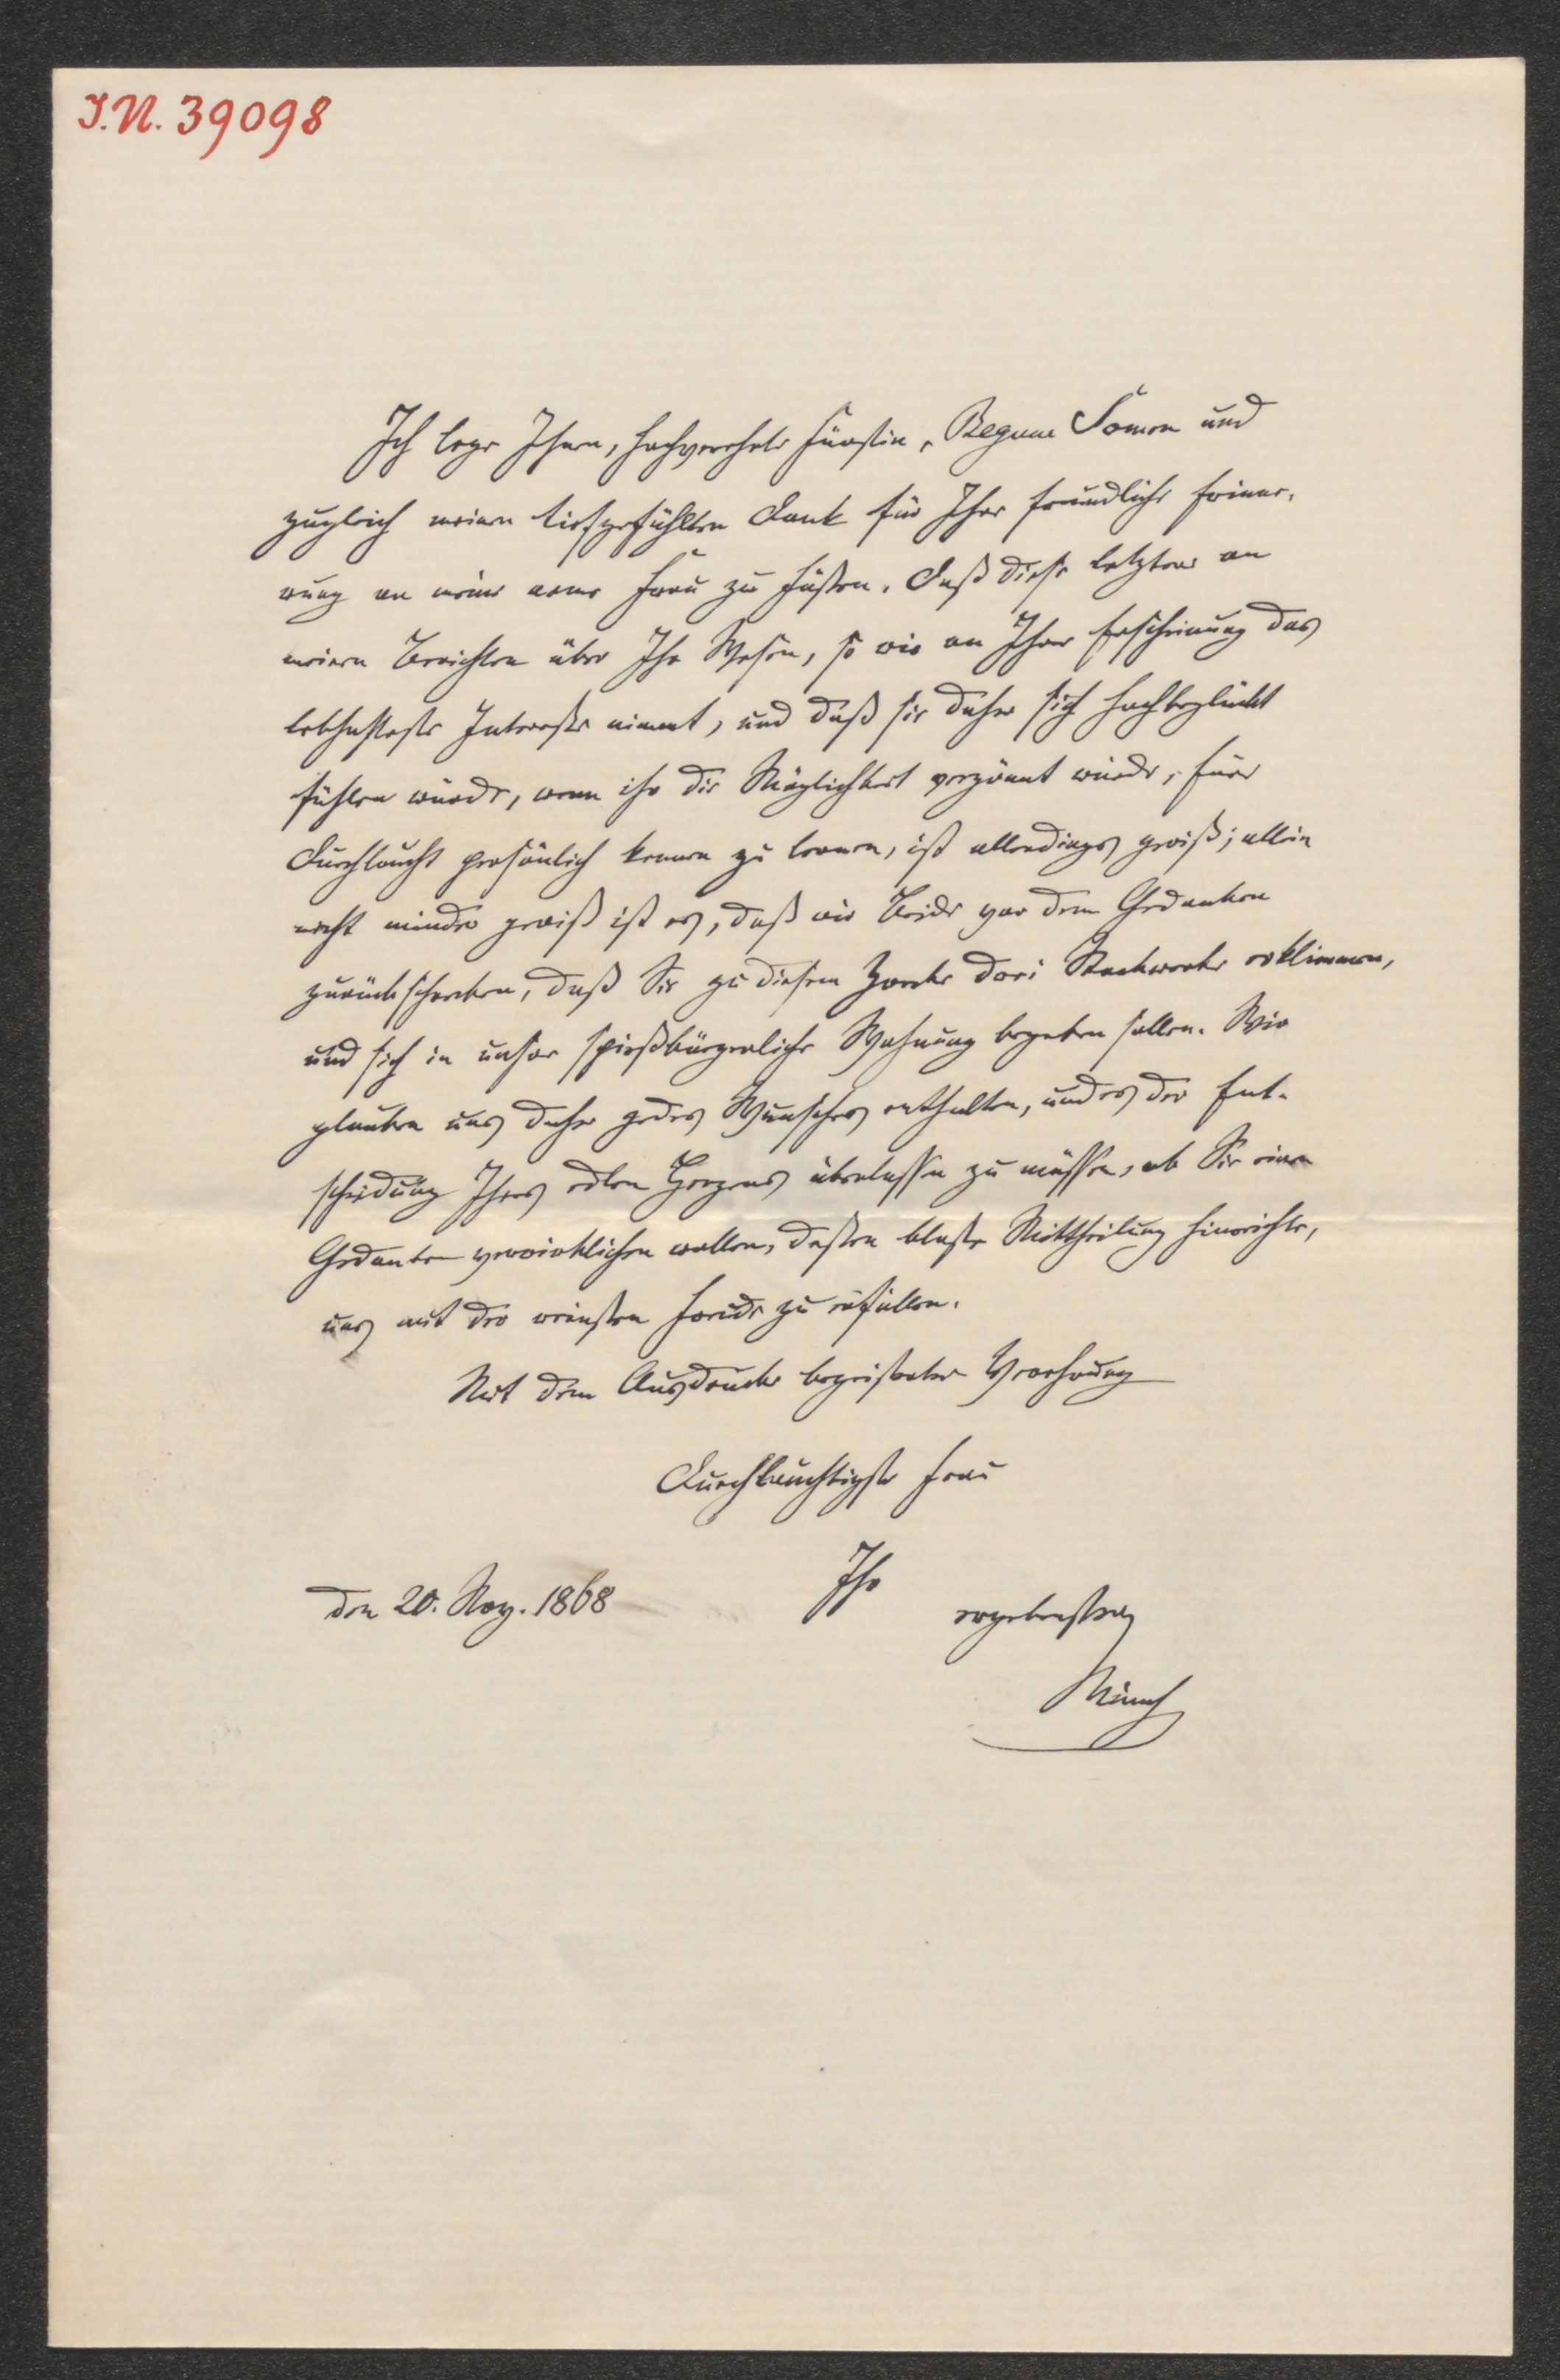 I.N. 39098
Ich lege Ihnen, hochverehrte Fürstin, Begum Somru und
zugleich meinen tiefgefühlten Dank für Ihre freundliche Erinne-
rung an meine arme Frau zu Füßen. Daß diese letztere an
meinen Berichten über Ihr Wesen, so wie an Ihrer Erscheinung das
lebhafteste Interesse nimmt, und daß sie daher sich hochbeglückt
fühlen würde, wenn ihr die Möglichkeit vergönnt würde, Euer
Durchlaucht persönlich kennen zu lernen, ist allerdings gewiß; allein
nicht minder gewiß ist es, daß wir Beide vor dem Gedanken
zurückschrecken, daß Sie zu diesem Zwecke drei Stockwerke erklimmen,
und sich in unsere spießbürgerliche Wohnung begeben sollen. Wir
glauben uns daher jedes Wunsches enthalten, und es der Ent-
scheidung Ihres edlen Herzens überlassen zu müssen, ob Sie einen
Gedanken verwirklichen wollen, dessen bloße Mittheilung hinreichte,
uns mit der reinsten Freude zu erfüllen.
Mit dem Ausdrucke begeisterter Verehrung
Durchlauchtigste Frau
Ihr
den 20. Nov. 1868
ergebenster
Münch